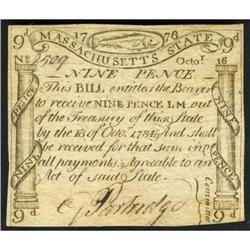 9d 1778 9d
MASSACHUSETTS STATE
No 2509 Octor. 16
NINE PENCE
This BILL entitles the Bearer
to receive NINE PENCE L.M. out
of the Treasury of this State
by the 18 of Octo. 1784 And shall
be received for that sum in
all payments. Agreeable to an
Act of said State.
NINE PENCE
NINE PENCE
C Partridge
Committee
9d 9d